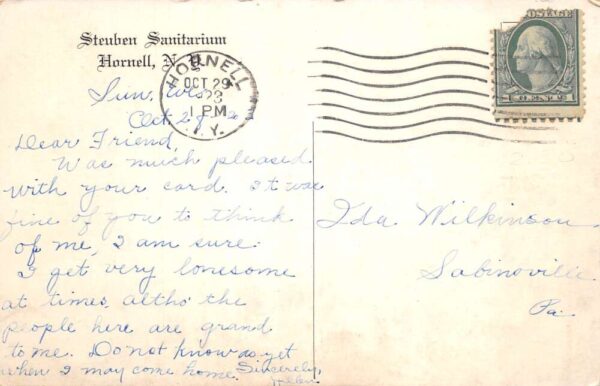 Steuben Sanitarium
Hornell, N. Y.
HORNELL
OCT 29
1 PM
N.Y.
POSTAGE
1 CENT 1
Sun. Eve.
Oct. 28
Dear Friend,
Was much pleased
with your card. It was
fine of you to think
of me, I am sure.
I get very lonesome
at times, altho the
people here are grand
to me. Do not know as yet
when I may come home.
Sincerely,
Helen
Ida Wilkinson
Sabinsville
Pa.